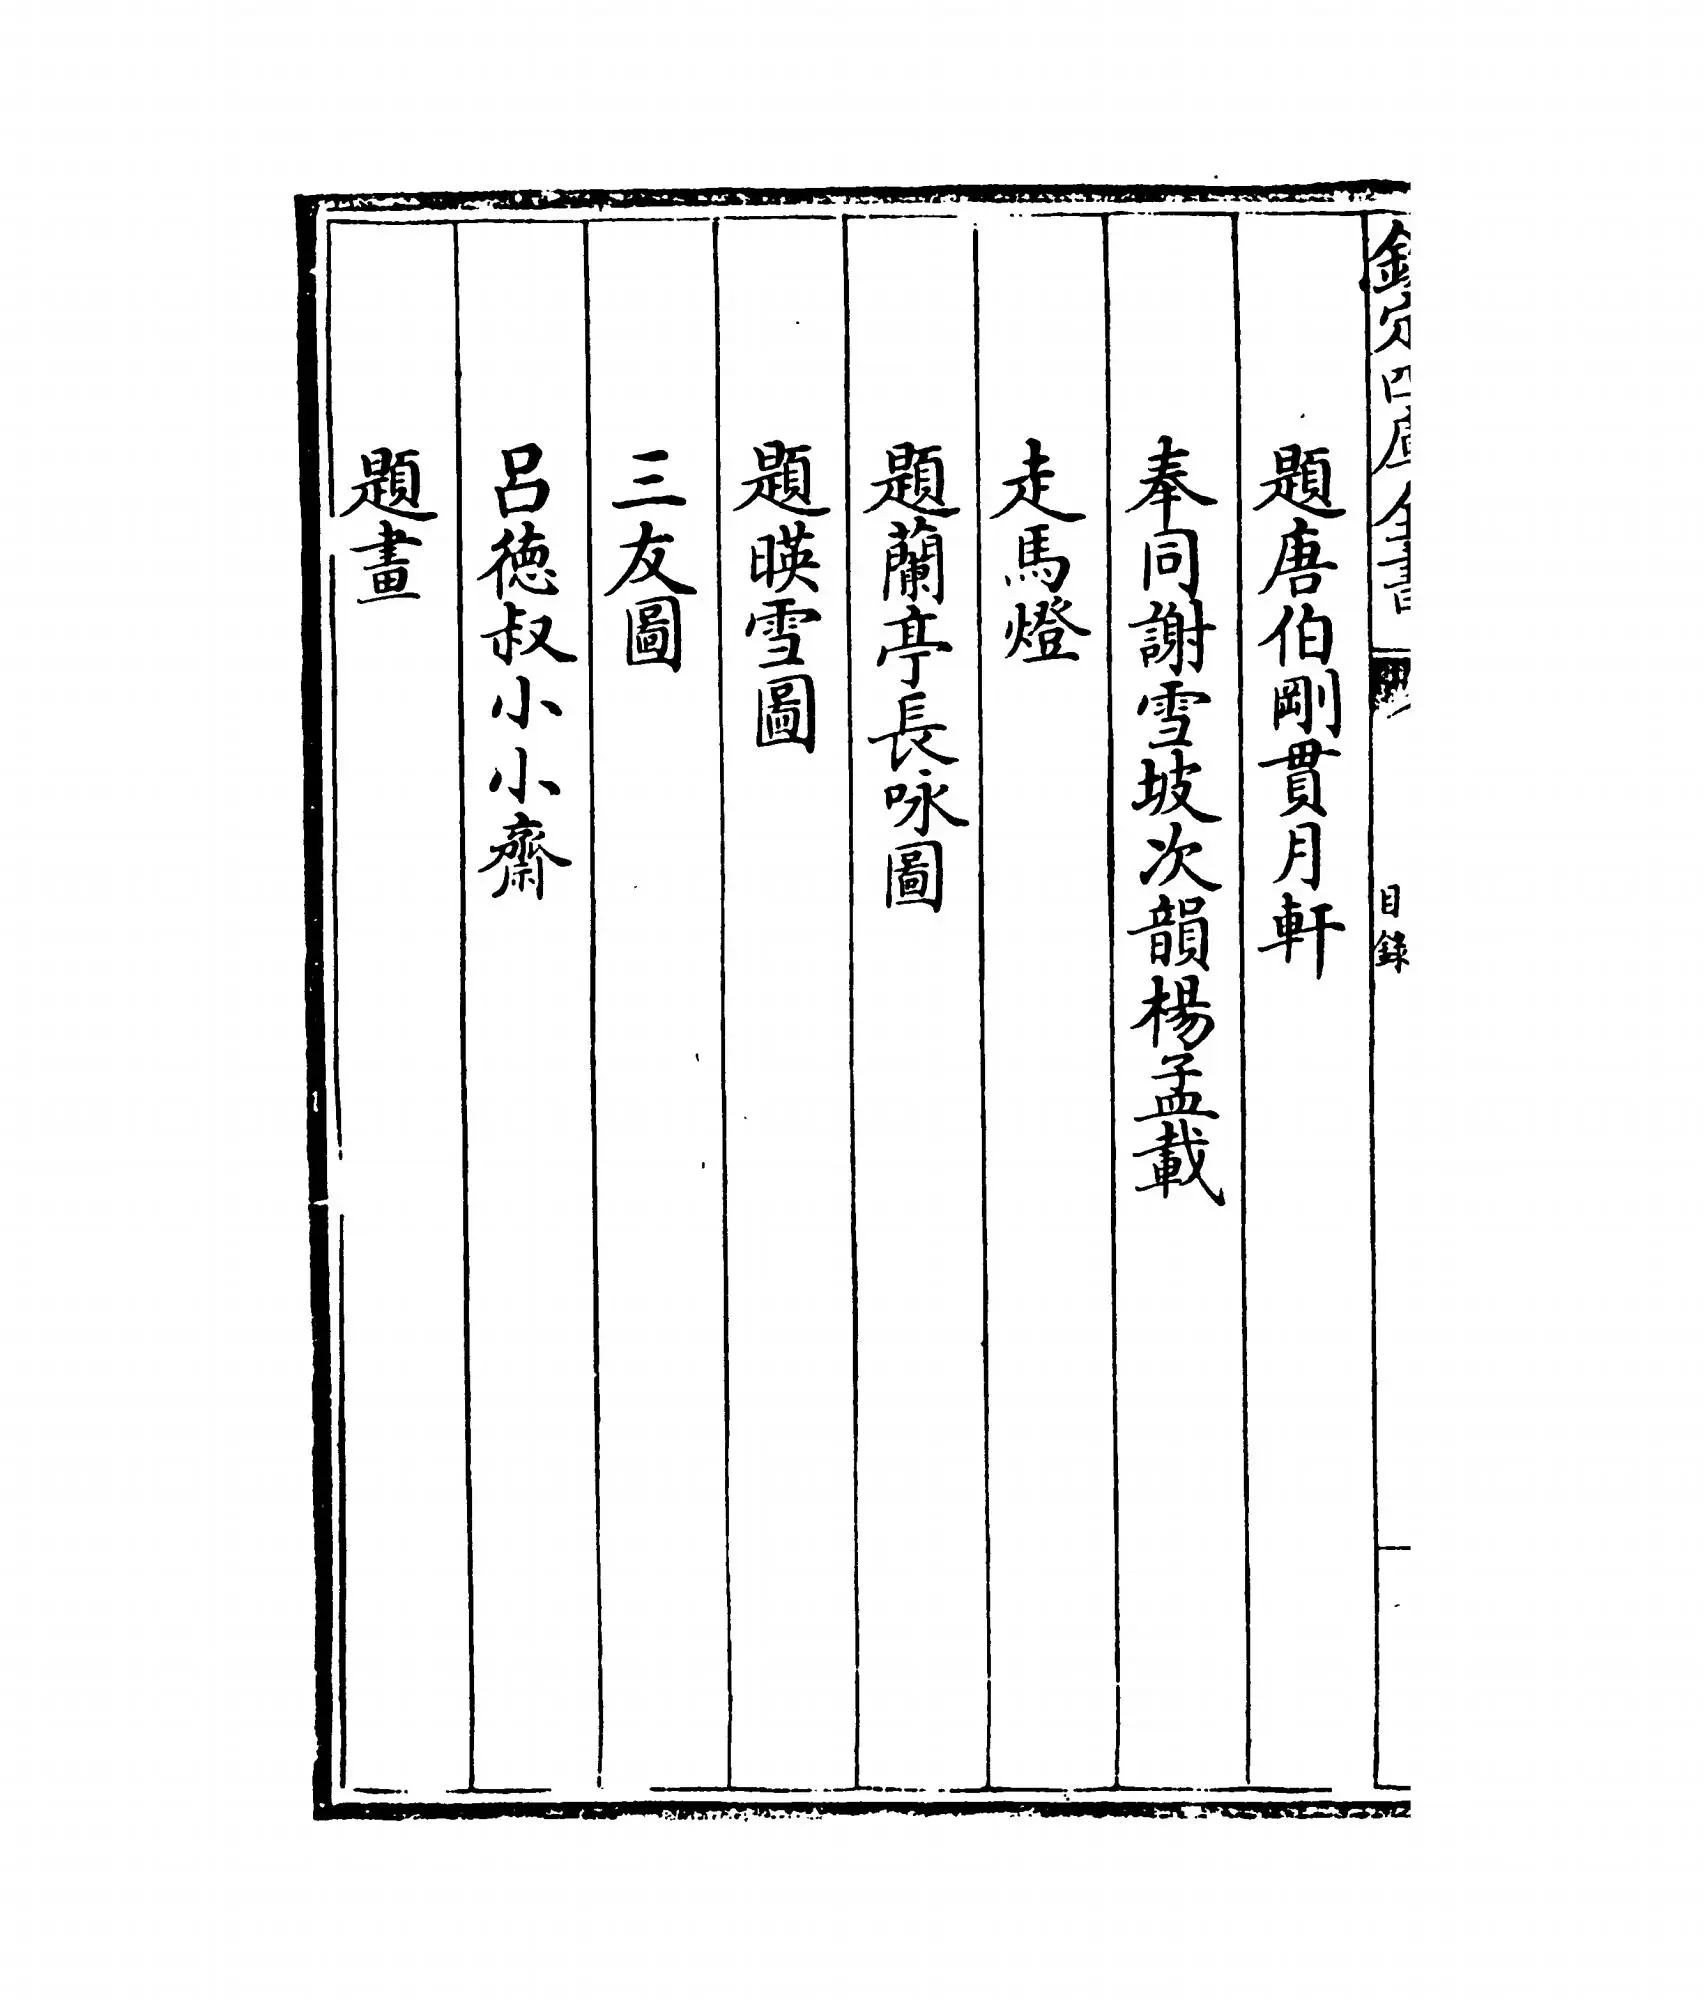 欽定四庫全書
目錄
題唐伯剛貫月軒
奉同謝雪坡次韻楊孟載
走馬燈
題蘭亭長咏圖
題暎雪圖
三友圖
呂徳叔小小齋
題畫